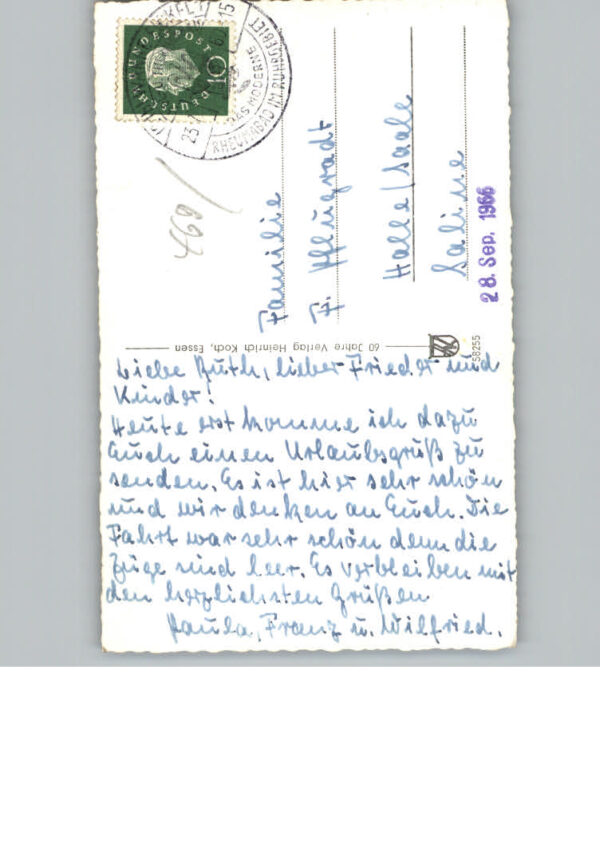 Liebe Ruth, lieber Frieder und
Kinder!
Heute erst komme ich dazu
Euch einen Urlaubsgruß zu
senden. Es ist hier sehr schön
und wir denken an Euch. Die
Fahrt war sehr schön denn die
Züge sind leer. Es verbleiben mit
den herzlichsten Grüßen
Paula, Franz u. Wilfried.
Familie
F. Pflugradt
Halle/Saale
Saline
28. Sep. 1966
60 Jahre Verlag Heinrich Koch, Essen
58255
DEUTSCHE BUNDESPOST
10
DAS MODERNE
RHEUMABAD IM RUHRGEBIET
469